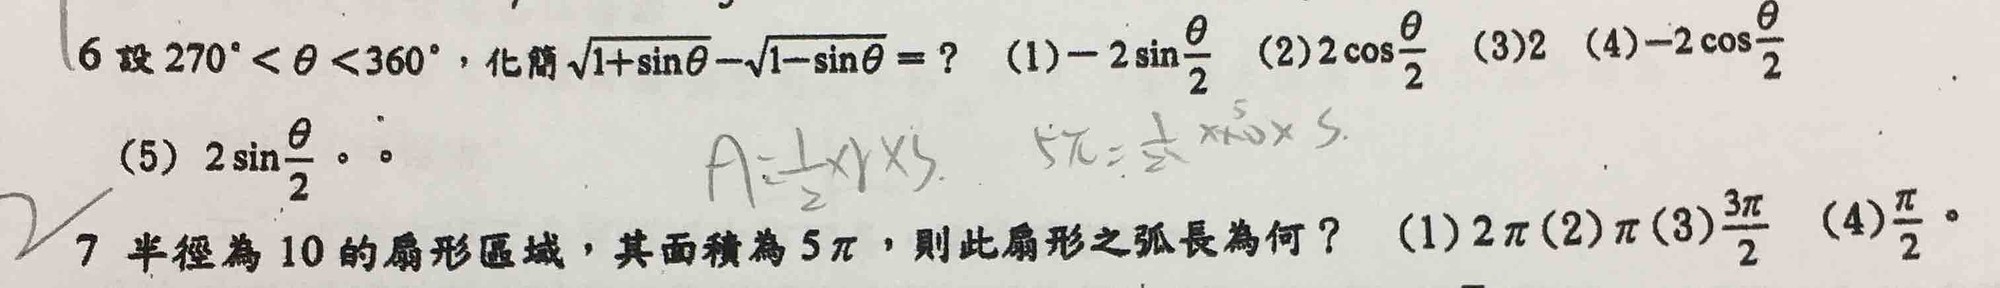 6 設 270° < θ < 360°，化簡 √(1+sinθ) − √(1−sinθ) = ? (1) −2 sin θ/2 (2) 2 cos θ/2 (3) 2 (4) −2 cos θ/2
(5) 2 sin θ/2 。。
A = 1/2 × r × S. 5π = 1/2 × 10 5 × S.
7 半徑為 10 的扇形區域，其面積為 5π，則此扇形之弧長為何？ (1) 2π (2) π (3) 3π/2 (4) π/2 。